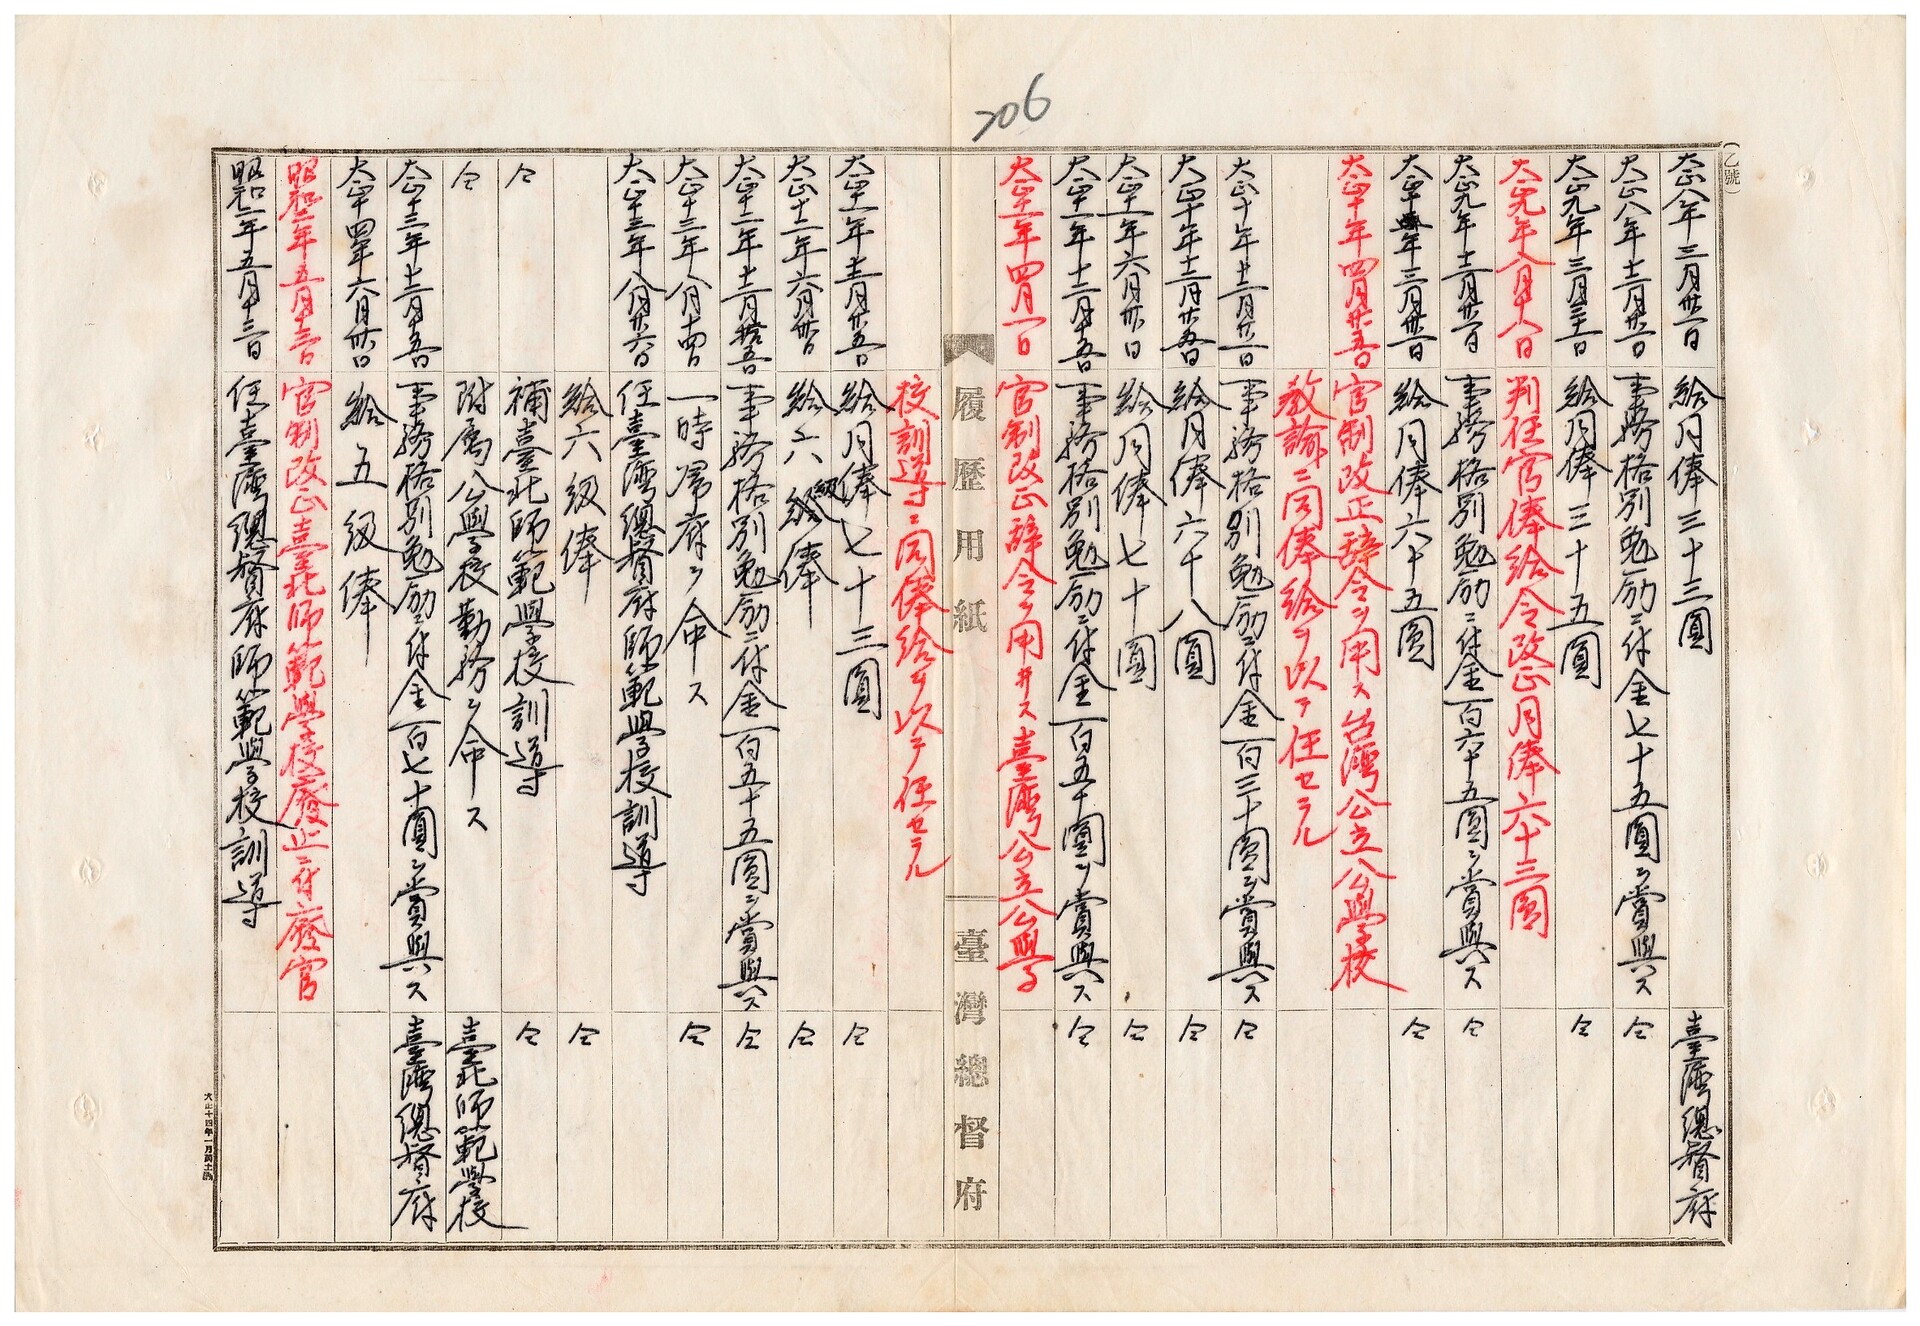 206
(乙號)
大正八年三月卅一日 給月俸三十三圓 臺灣總督府
大正八年十二月廿六日 事務格別勉励ニ付金七十五圓ヲ賞與ス 仝
大正九年三月三十一日 給月俸三十五圓 仝
大正九年八月十八日 判任官俸給令改正月俸六十三圓
大正九年十二月廿六日 事務格別勉励ニ付金百六十五圓ヲ賞與ス 仝
大正十年三月卅一日 給月俸六十五圓 仝
大正十年四月廿五日 官制改正辞令ヲ用ヰス台灣公立公學校
教諭ニ同俸給ヲ以テ任セラル
大正十年十二月廿六日 事務格別勉励ニ付金百三十圓ヲ賞與ス 仝
大正十年十二月廿五日 給月俸六十八圓 仝
大正十一年六月卅日 給月俸七十圓 仝
大正十一年十二月十五日 事務格別勉励ニ付金百五十圓ヲ賞與ス 仝
大正十一年四月一日 官制改正辞令ヲ用ヰス臺灣公立公學
履歷用紙 臺灣總督府
校訓導ニ同俸給ヲ以テ任セラル
大正十一年十二月廿五日 給月俸七十三圓 仝
大正十二年六月卅日 給六級俸 仝
大正十二年十二月拾五日 事務格別勉励ニ付金百五十五圓ヲ賞與ス 仝
大正十三年八月十四日 一時歸府ヲ命ス 仝
大正十三年八月廿六日 任臺灣總督府師範學校訓導
給六級俸 仝
仝 補臺北師範學校訓導 仝
仝 附属公學校勤務ヲ命ス 臺北師範學校
大正十三年十二月十五日 事務格別勉励ニ付金百七十圓ヲ賞與ス 臺灣總督府
大正十四年六月卅日 給五級俸
昭和二年五月十三日 官制改正臺北師範學校廢止ニ付廢官
昭和二年五月十三日 任臺灣總督府師範學校訓導
大正十四年一月